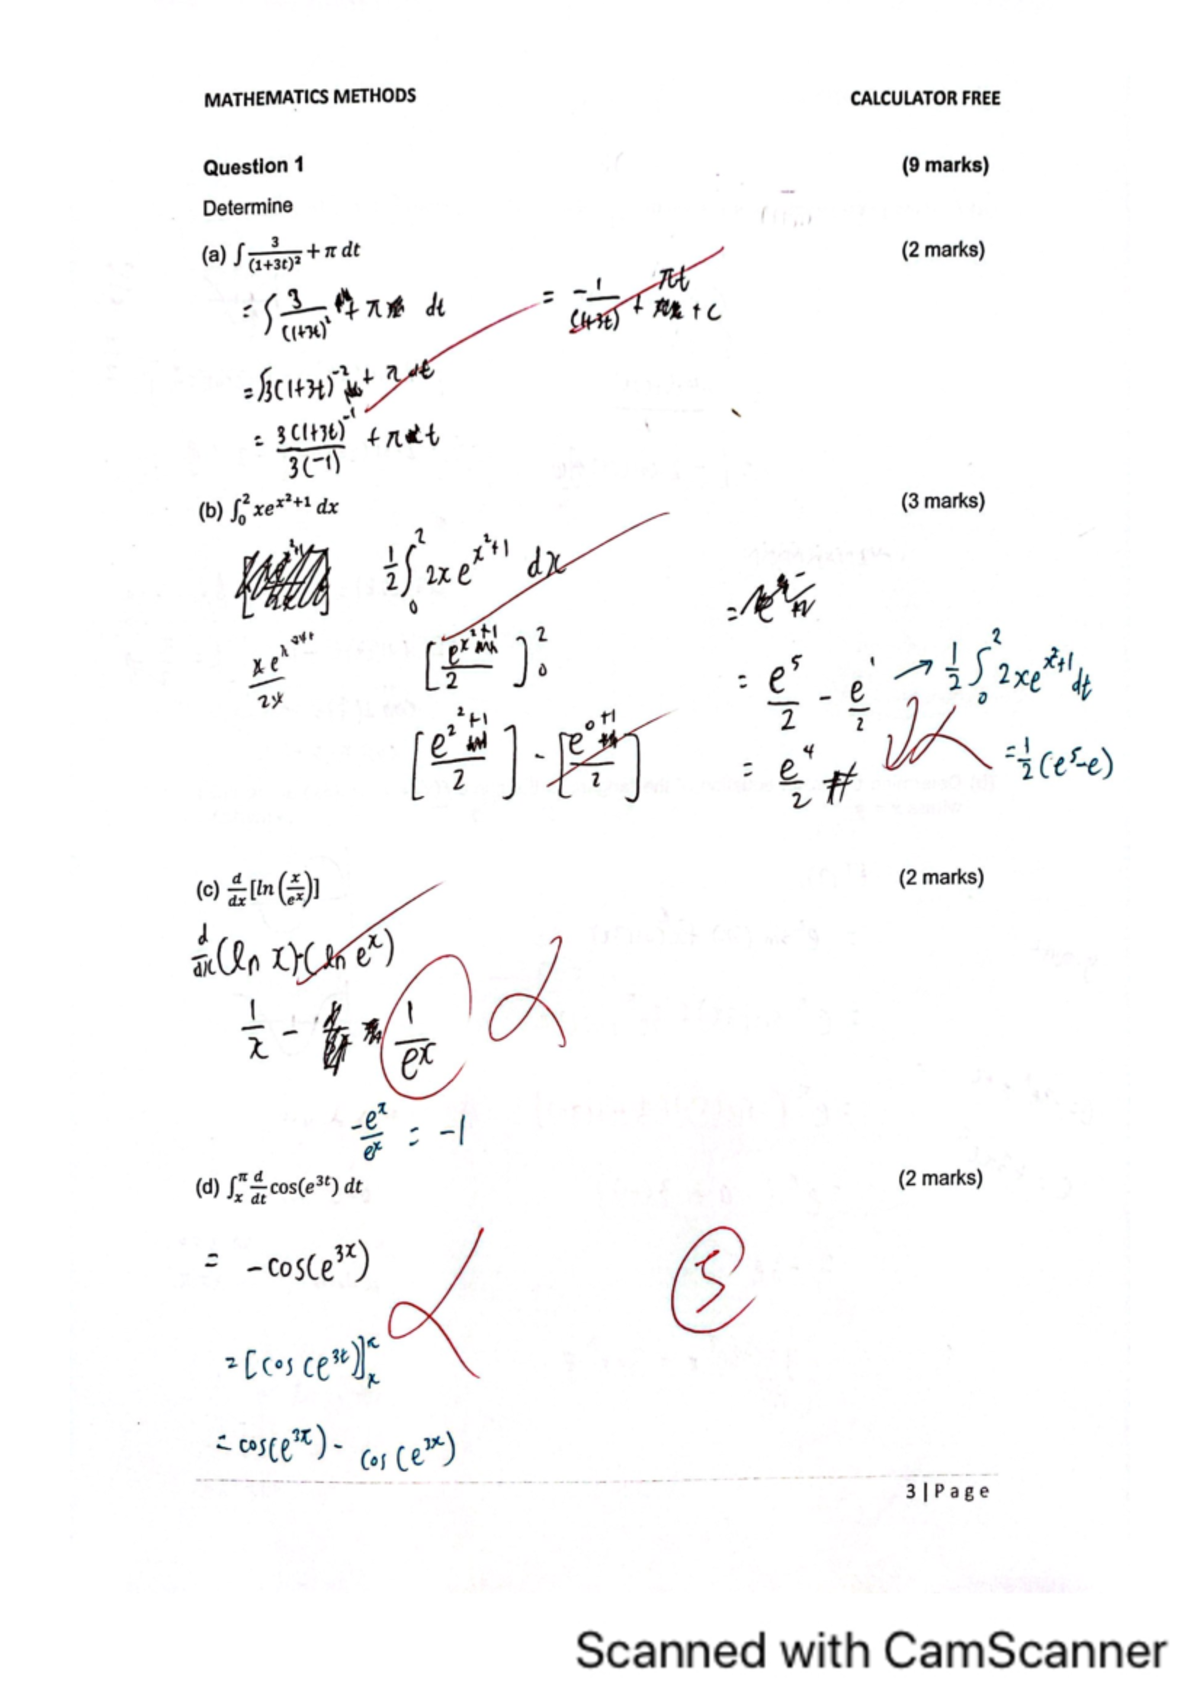 MATHEMATICS METHODS CALCULATOR FREE
Question 1 (9 marks)
Determine
(a) ∫ 3/(1+3t)² + π dt (2 marks)
= ∫ 3/(1+3t)² + π dt
= ∫3(1+3t)⁻² + π dt
= 3(1+3t)⁻¹/3(-1) + πt
= -1/(1+3t) + πt + c
(b) ∫₀² xe^(x²+1) dx (3 marks)
1/2 ∫₀² 2x e^(x²+1) dx
[e^(x²+1)/2]₀²
[e^(2²+1)/2] - [e^(0+1)/2]
= e⁵/2 - e¹/2
= e⁴/2 #
→ 1/2 ∫₀² 2xe^(x²+1) dt
= 1/2 (e⁵-e)
(c) d/dx [ln(x/eˣ)] (2 marks)
d/dx (ln x)-(ln eˣ)
1/x - 1/eˣ
-eˣ/eˣ = -1
(d) ∫ₓ^π d/dt cos(e³ᵗ) dt (2 marks)
= -cos(e³ˣ)
5
= [cos(e³ᵗ)]ₓ^π
= cos(e^(3π)) - cos(e³ˣ)
3 | Page
Scanned with CamScanner